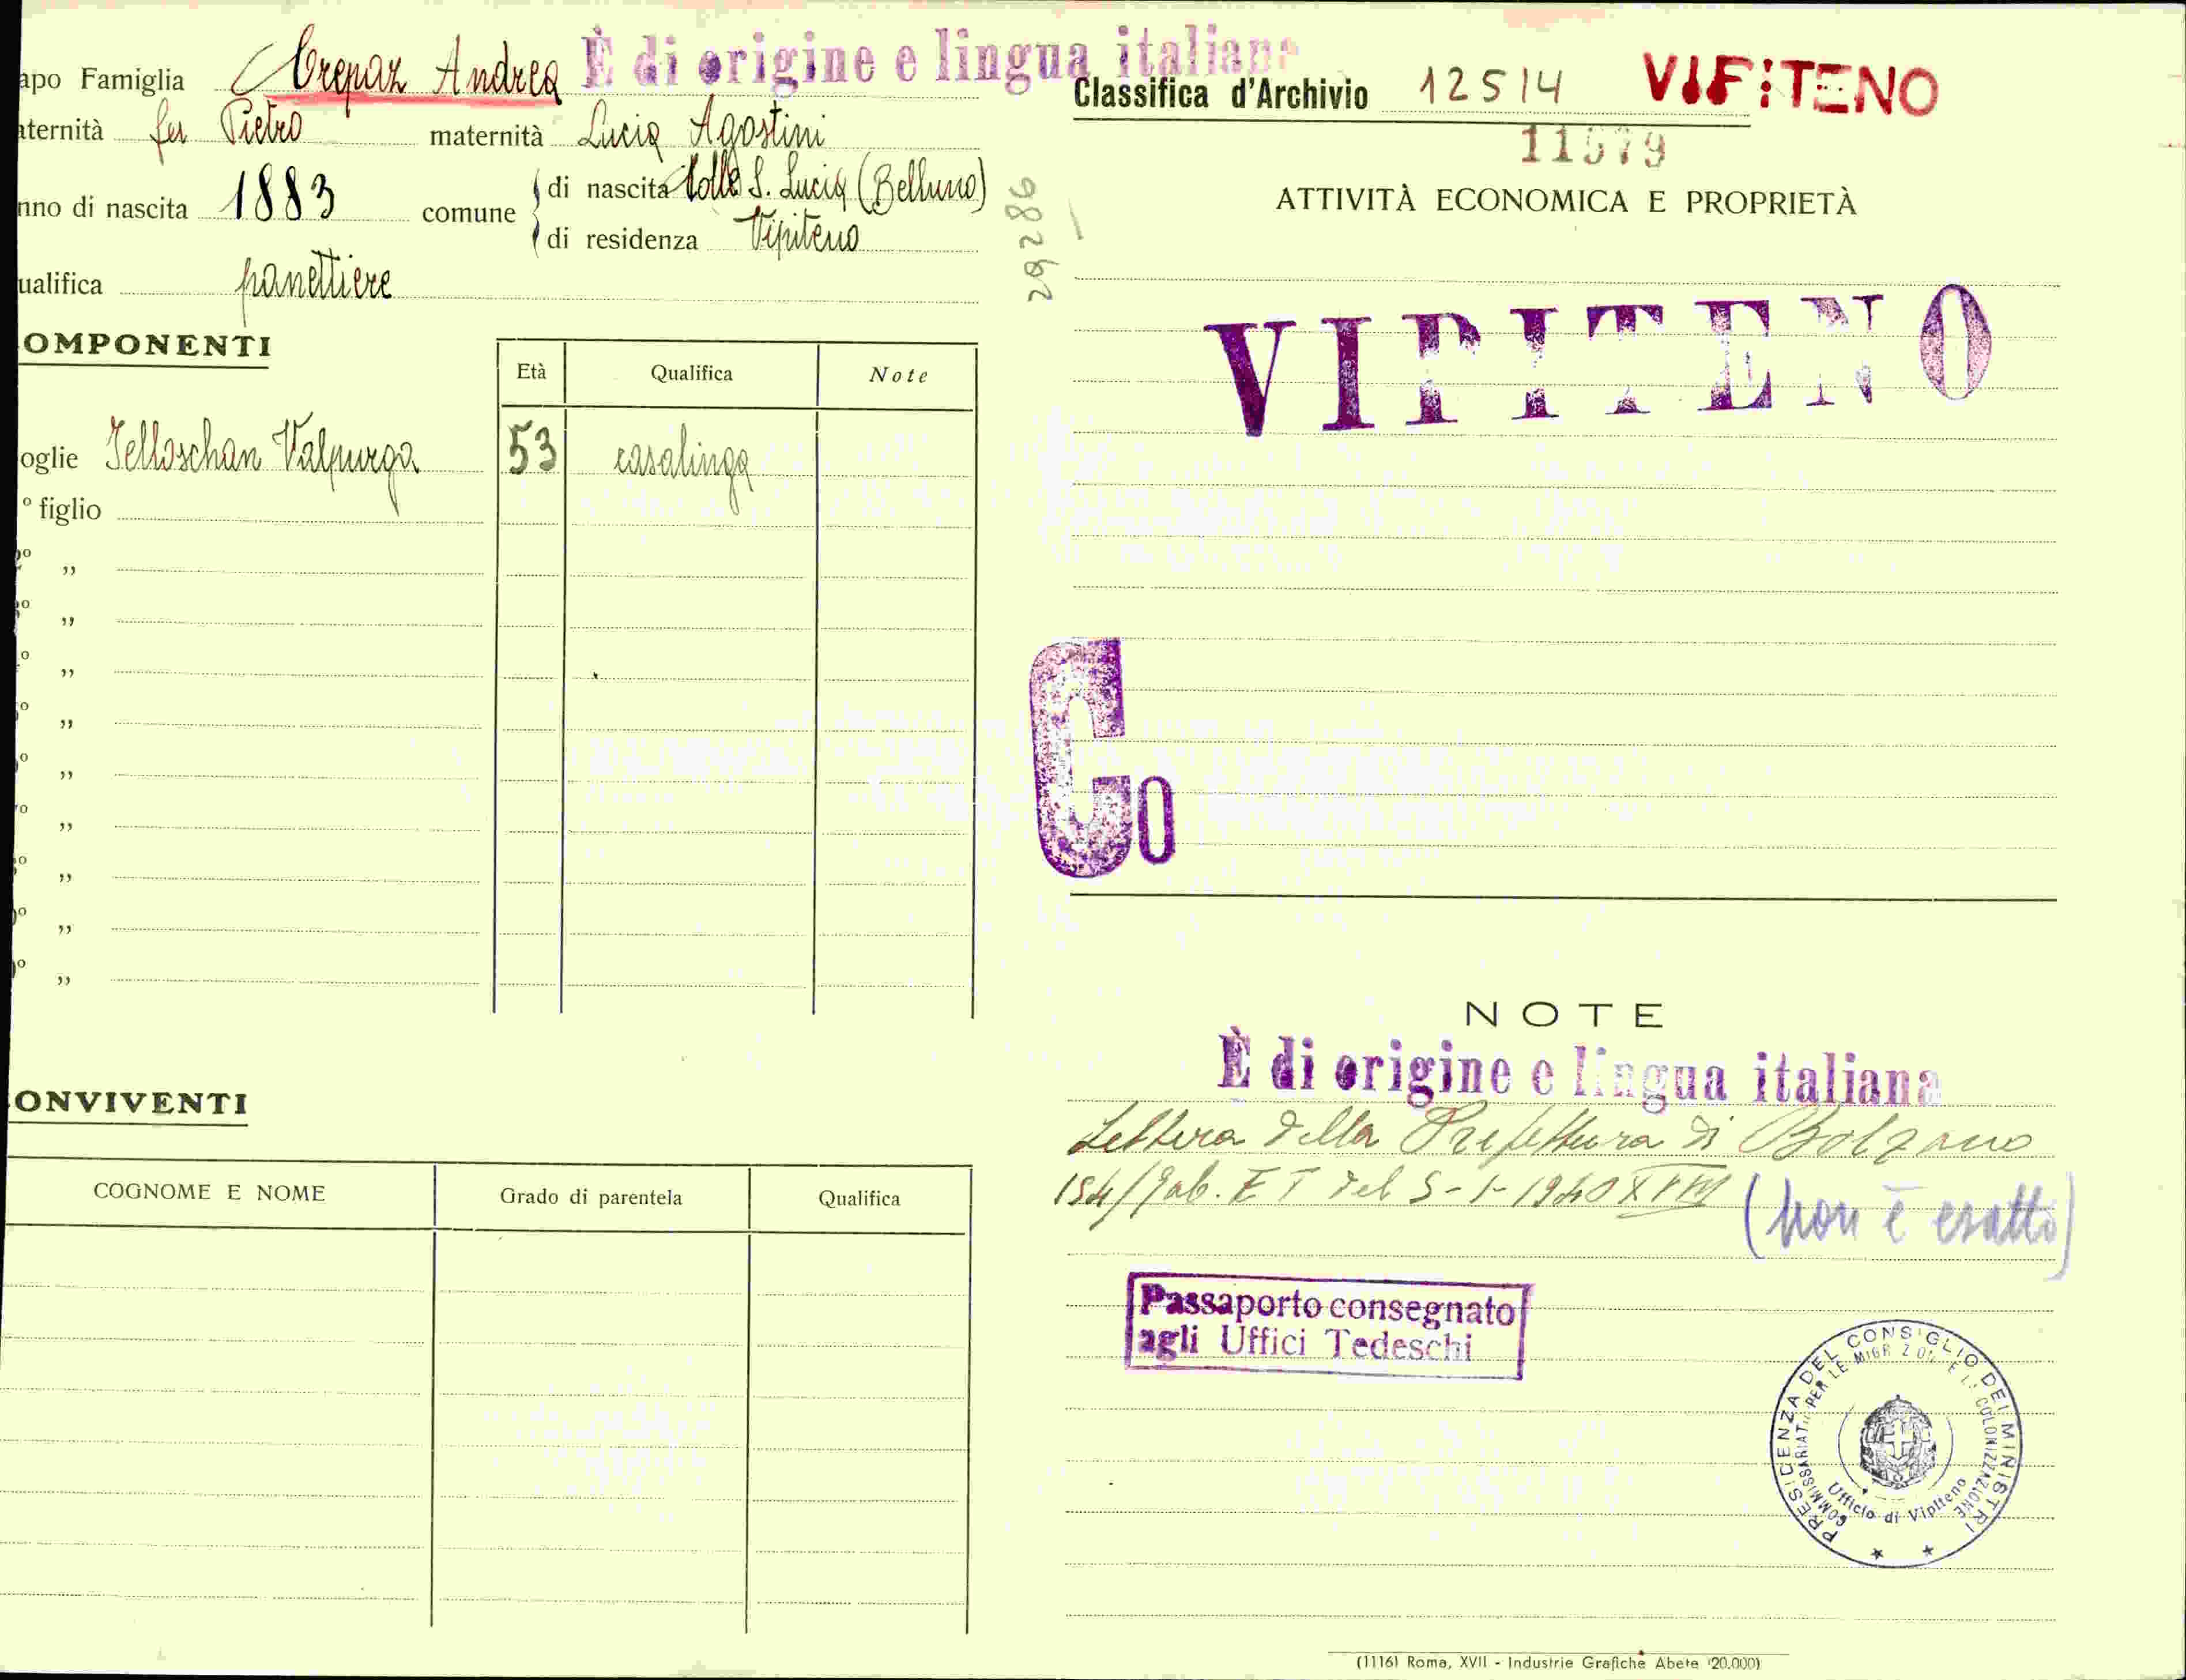 apo Famiglia Crepaz Andrea È di origine e lingua italiana
aternità fu Pietro maternità Lucia Agostini
nno di nascita 1883 comune di nascita Colle S. Lucia (Belluno)
di residenza Vipiteno
ualifica panettiere
OMPONENTI
Età Qualifica Note
oglie Jelloschan Valpurga 53 casalinga
º figlio
º „
º „
º „
º „
º „
º „
º „
º „
º „
ONVIVENTI
COGNOME E NOME Grado di parentela Qualifica
29286
Classifica d'Archivio 12514 VIFITENO
11579
ATTIVITÀ ECONOMICA E PROPRIETÀ
VIPITENO
Co
NOTE
È di origine e lingua italiana
Lettera della Prefettura di Bolzano
154/Gab. E T del 5-1-1940 XVIII (non è esatto)
Passaporto consegnato
agli Uffici Tedeschi
PRESIDENZA DEL CONSIGLIO DEI MINISTRI
COMMISSARIATO PER LE MIGRAZIONI E LA COLONIZZAZIONE
Ufficio di Vipiteno
(1116) Roma, XVII - Industrie Grafiche Abete (20.000)